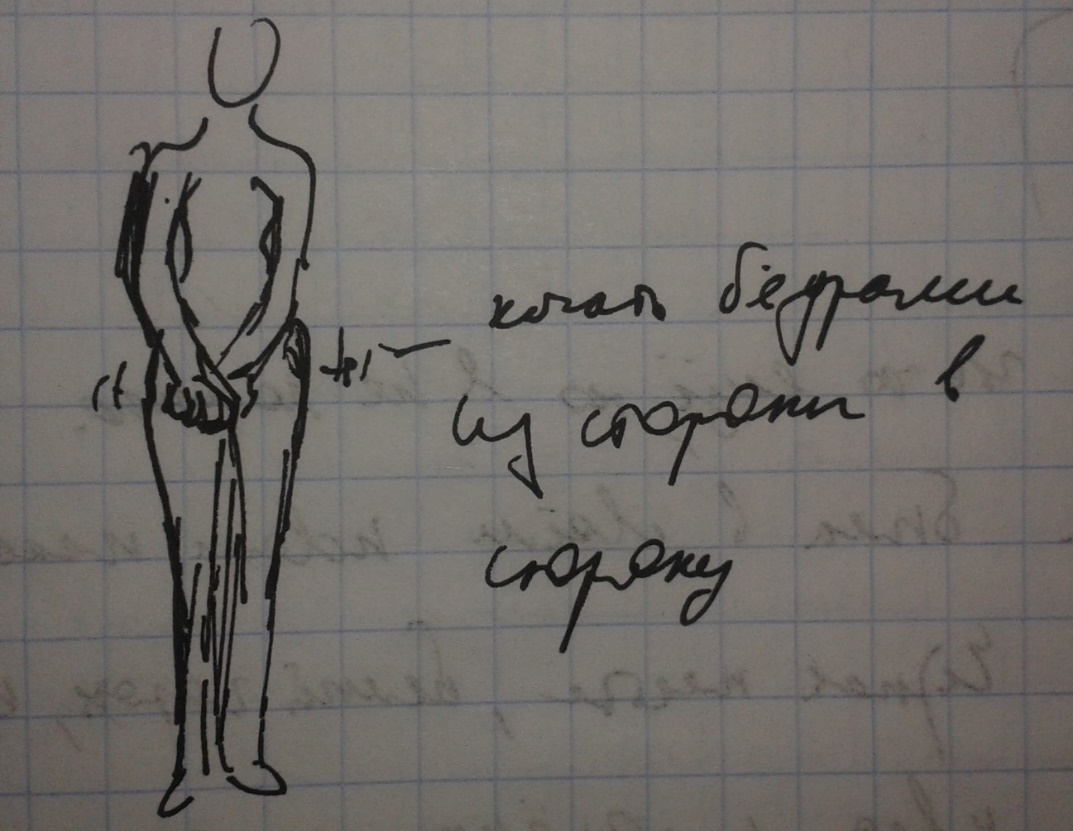 качать бёдрами
из стороны в
сторону